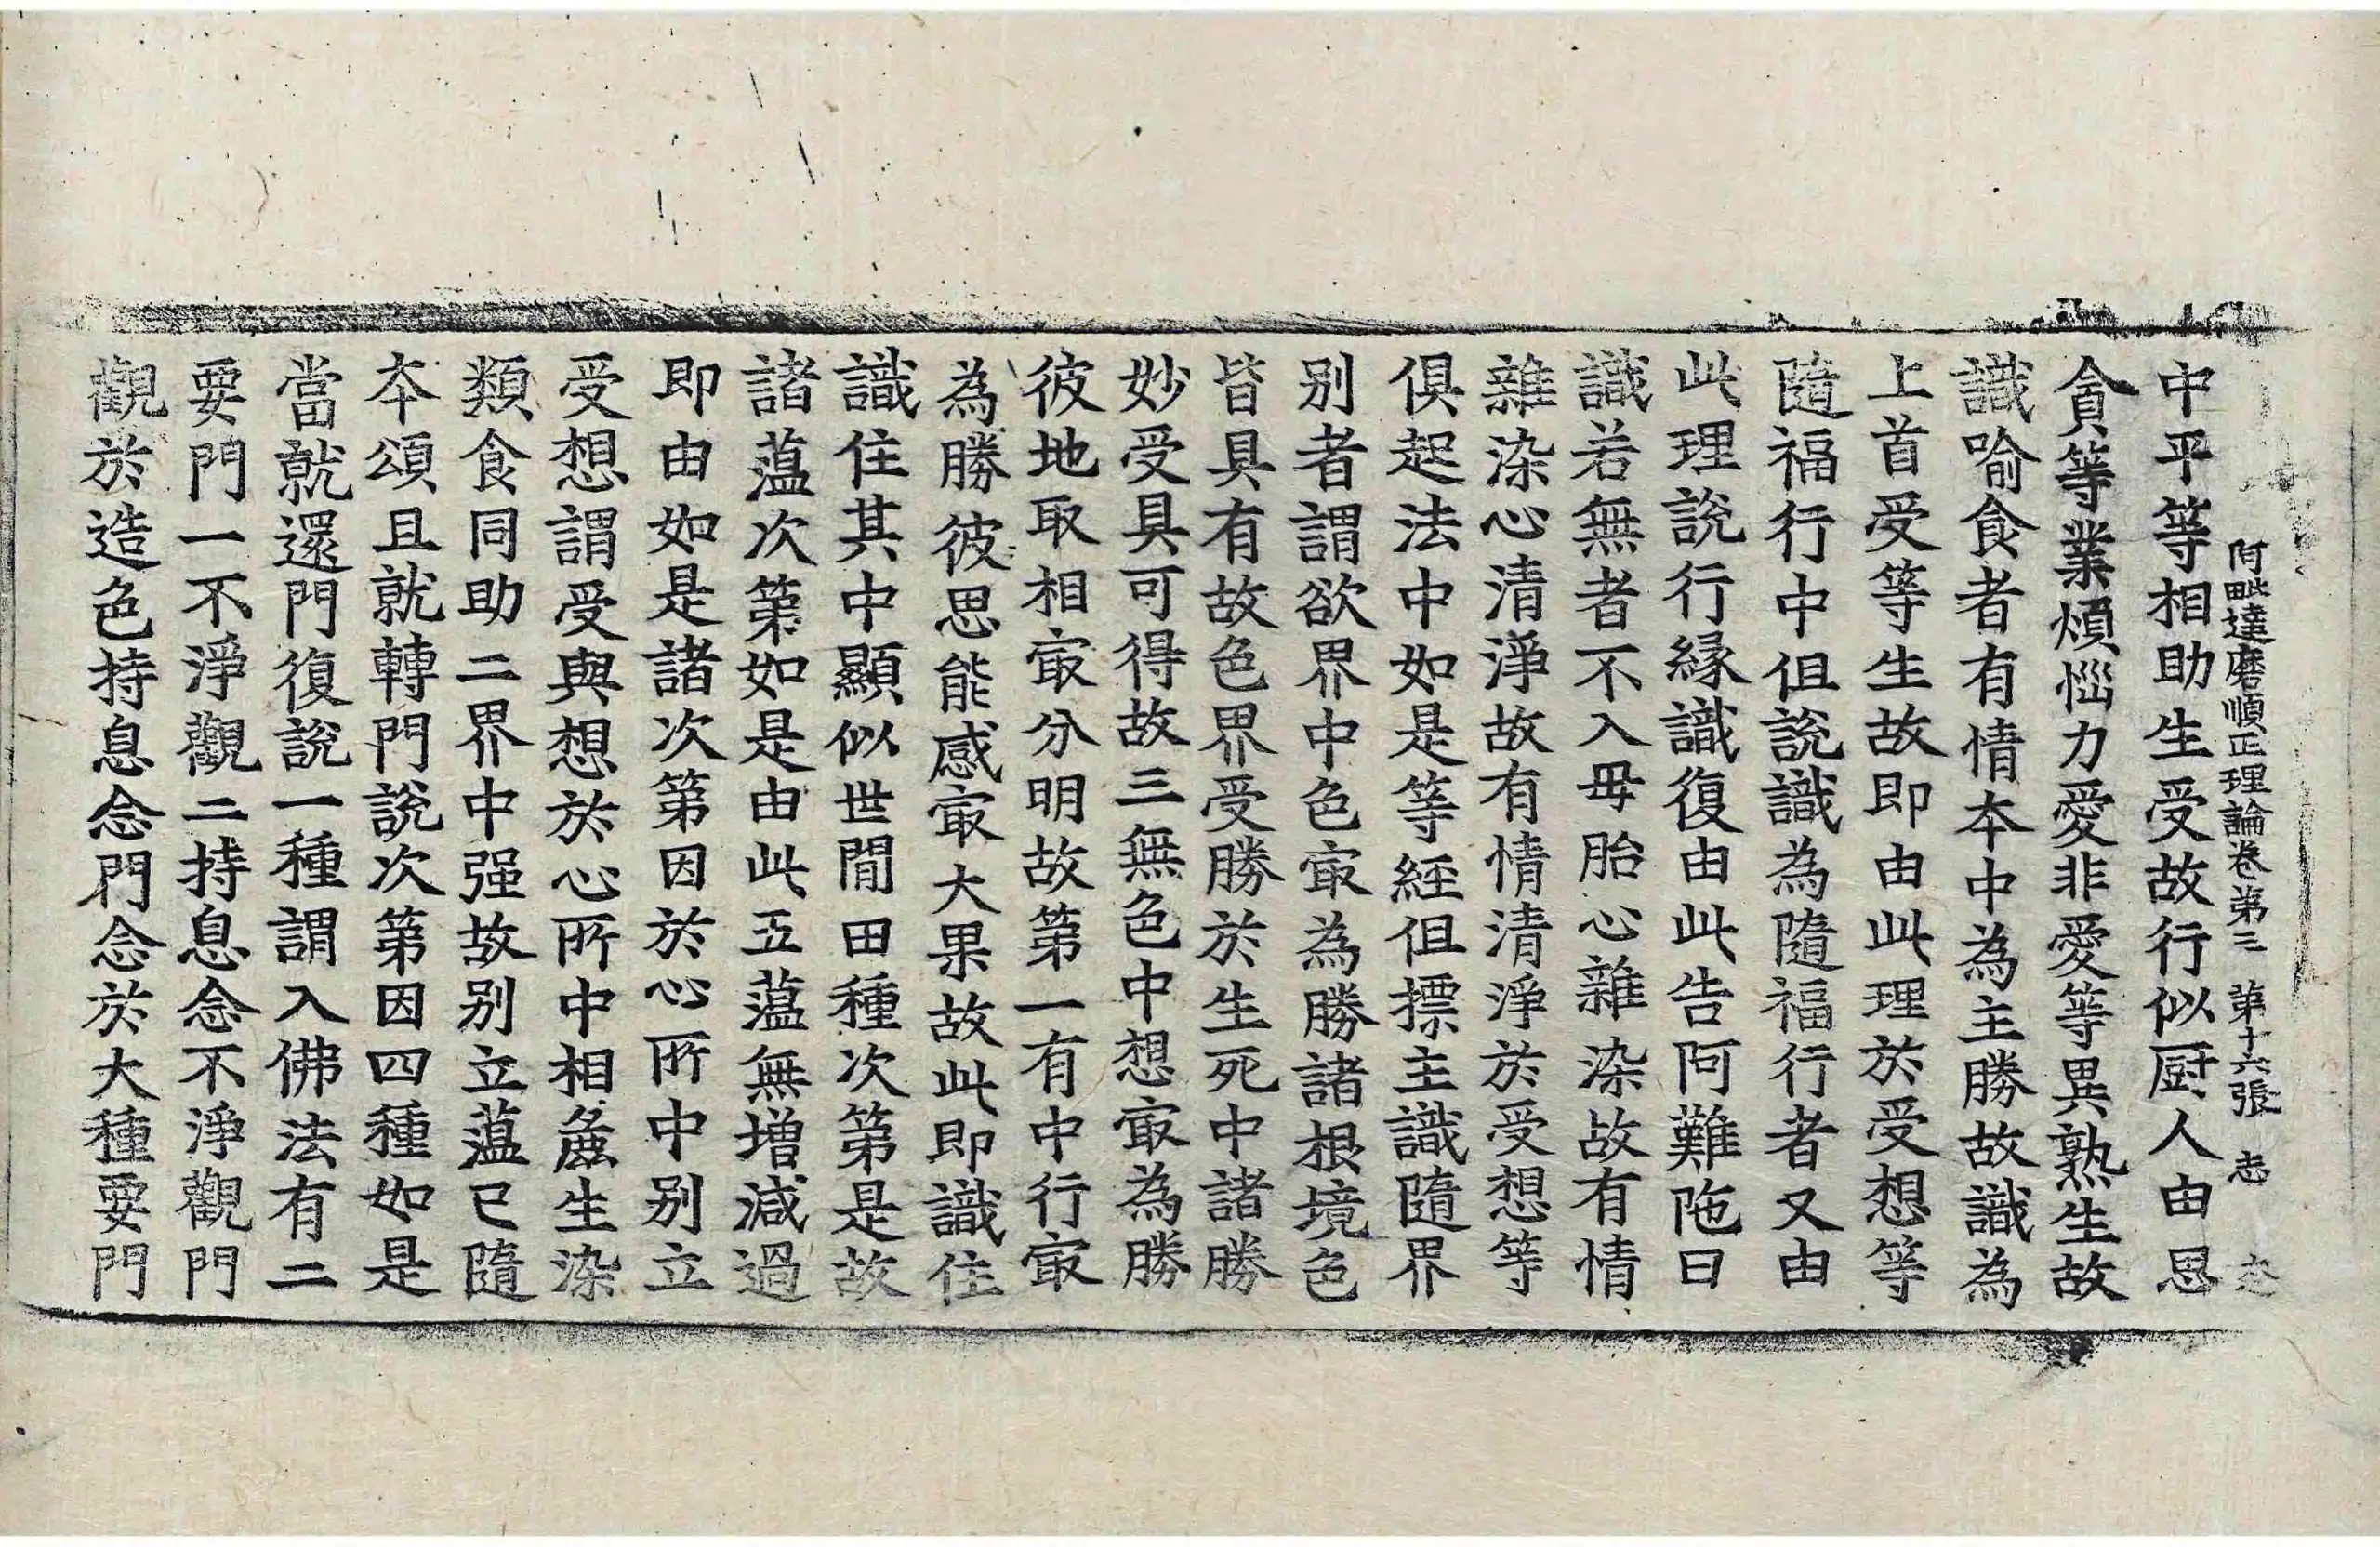 阿毗達磨順正理論卷第三 第十六張 志
中平等相助生受故行似厨人由思
貪等業煩惱力愛非愛等異熟生故
識喻食者有情本中為主勝故識為
上首受等生故即由此理於受想等
隨福行中但說識為隨福行者又由
此理說行縁識復由此告阿難陁曰
識若無者不入毋胎心雜染故有情
雜染心清淨故有情清淨於受想等
俱起法中如是等経但摽主識隨界
別者謂欲界中色㝡為勝諸根境色
皆具有故色界受勝於生死中諸勝
妙受具可得故三無色中想㝡為勝
彼地取相㝡分明故第一有中行㝡
為勝彼思能感㝡大果故此即識住
識住其中顯似世間田種次第是故
諸薀次第如是由此五薀無增減過
即由如是諸次第因於心所中別立
受想謂受與想於心所中相麁生染
類食同助二界中强故別立薀已隨
本頌且就轉門說次第因四種如是
當就還門復說一種謂入佛法有二
要門一不淨觀二持息念不淨觀門
觀於造色持息念門念於大種要門